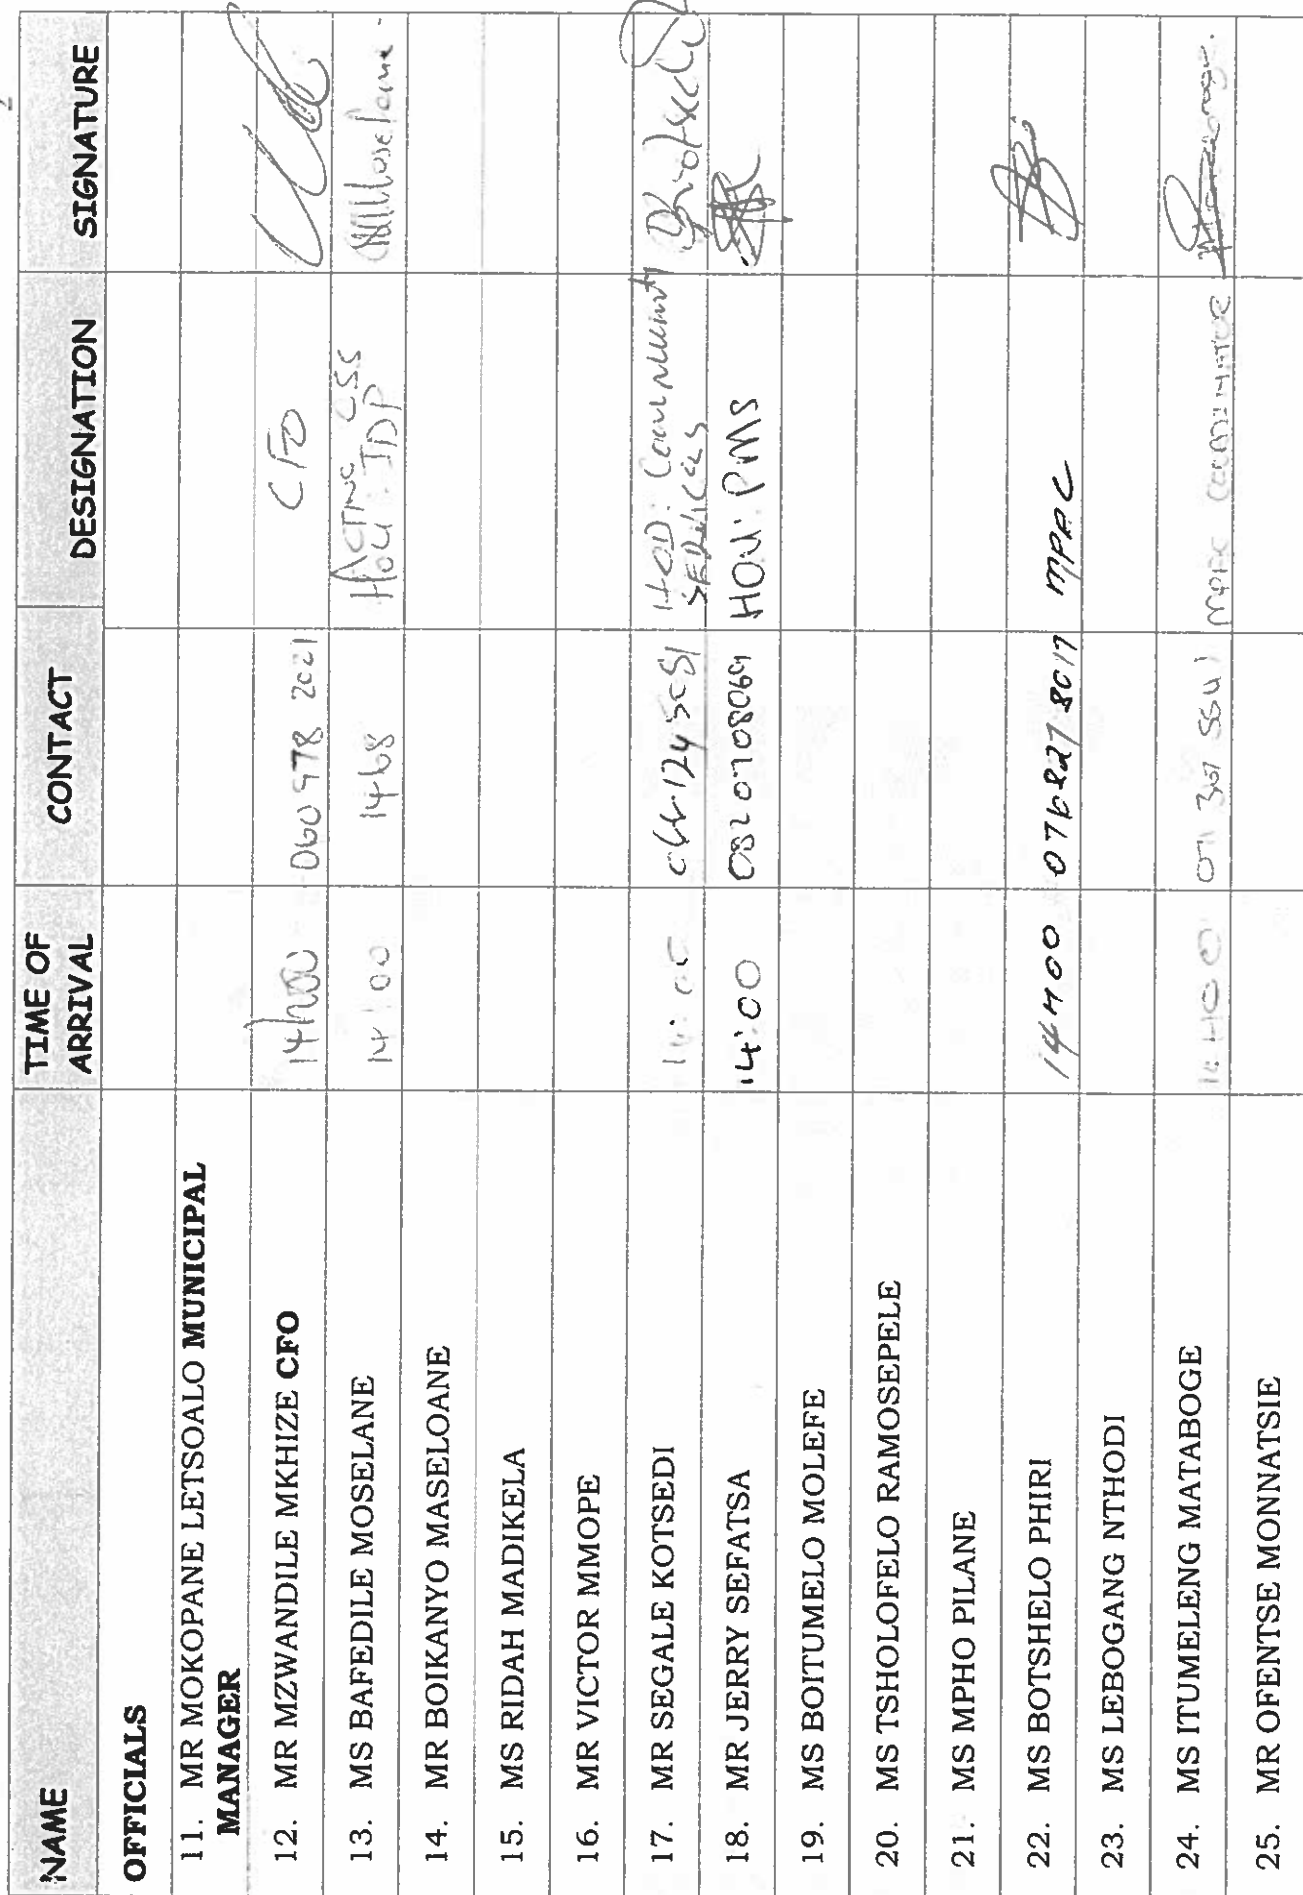 NAME TIME OF ARRIVAL CONTACT DESIGNATION SIGNATURE
OFFICIALS
11. MR MOKOPANE LETSOALO MUNICIPAL
MANAGER
12. MR MZWANDILE MKHIZE CFO 14h00 CFO
13. MS BAFEDILE MOSELANE 14 00 1468 ACTING CSS
HOU: IDP
14. MR BOIKANYO MASELOANE
15. MS RIDAH MADIKELA
16. MR VICTOR MMOPE
17. MR SEGALE KOTSEDI HOD: Community
SERVICES
18. MR JERRY SEFATSA 14:00 HOU: PMS
19. MS BOITUMELO MOLEFE
20. MS TSHOLOFELO RAMOSEPELE
21. MS MPHO PILANE
22. MS BOTSHELO PHIRI 14H00 0768278017 MPAC
23. MS LEBOGANG NTHODI
24. MS ITUMELENG MATABOGE
25. MR OFENTSE MONNATSIE